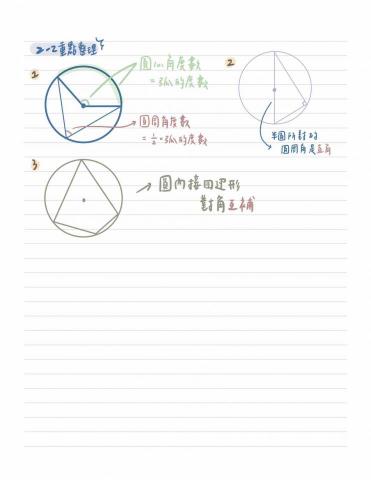 2-2重點整理
1
圓心角度數
=弧的度數
圓周角度數
=½×弧的度數
2
半圓所對的
圓周角是直角
3
圓內接四邊形
對角互補